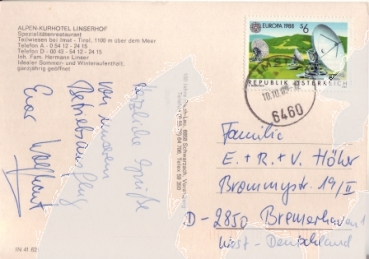 ALPEN-KURHOTEL LINSERHOF
Spezialitätenrestaurant
Teilwiesen bei Imst - Tirol, 1100 m über dem Meer
Telefon A - 0 54 12 - 24 15
Telefon D - 00 43 - 54 12 - 24 15
Inh. Fam. Hermann Linser
Idealer Sommer- und Winteraufenthalt,
ganzjährig geöffnet
Herzliche Grüße
von unserem
Betriebsausflug
Euer
IM 41 02
EUROPA 1988
S6
REPUBLIK ÖSTERREICH
6460
Familie
E. + R. + V. Höhr
Brommystr. 19/II
D - 2850 Bremerhaven 1
West - Deutschland